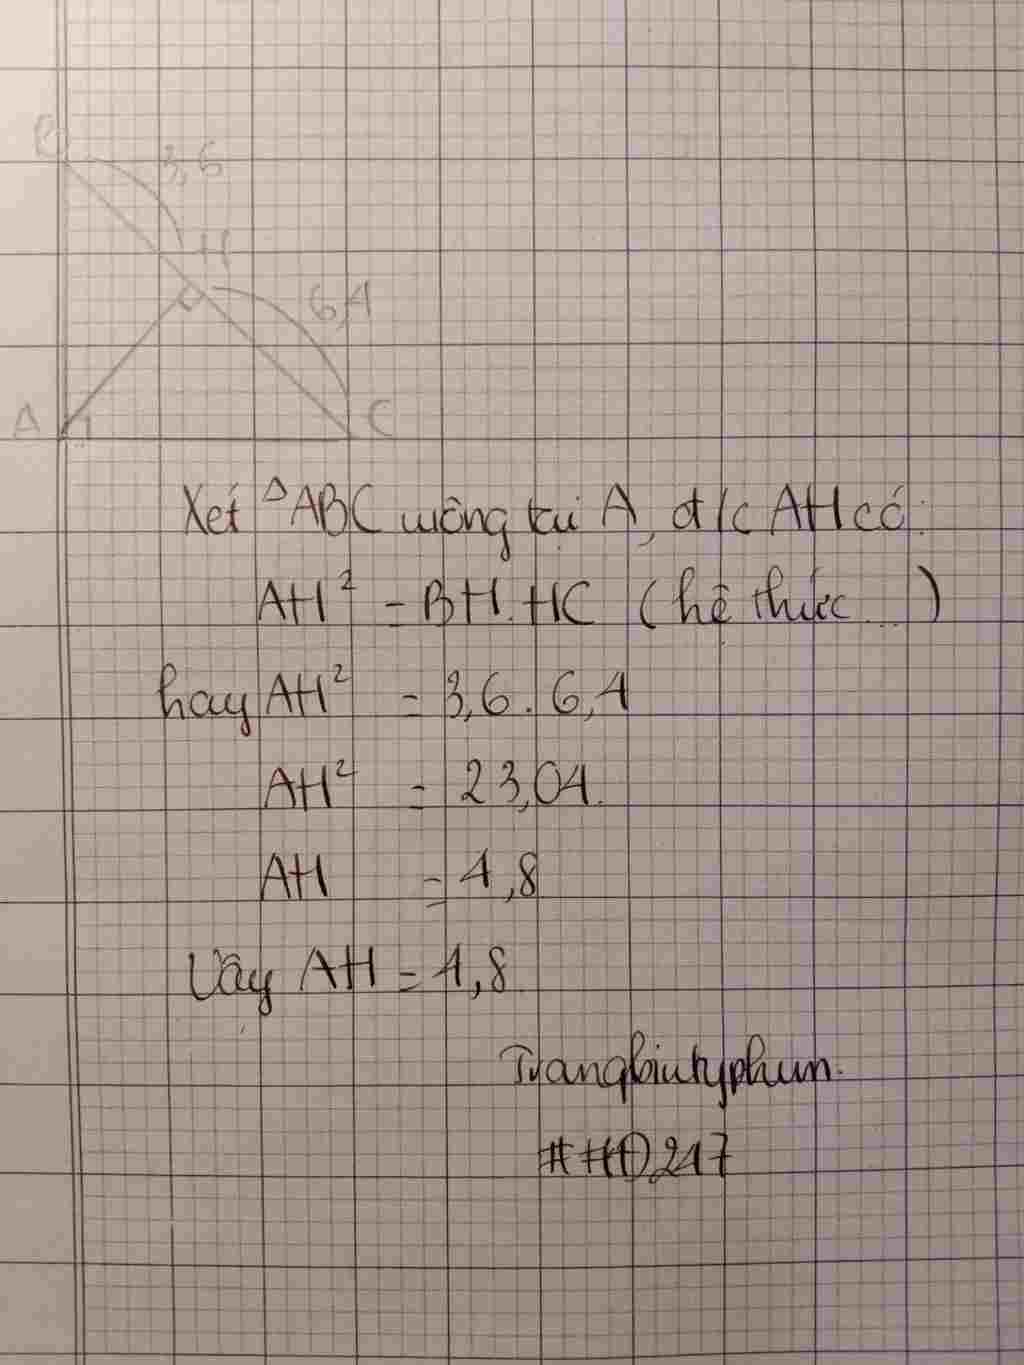 B
3,6
H
6,4
A
C
Xét △ABC vuông tại A, đ/c AH có:
AH² = BH.HC (hệ thức...)
hay AH² = 3,6.6,4
AH² = 23,04.
AH = 4,8
Vậy AH = 4,8.
Trangbiutyphun.
#HĐ247